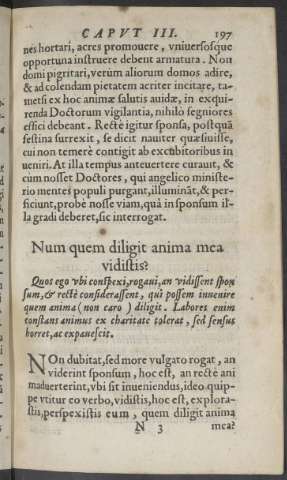 CAPVT III. 197
nes hortari, acres promouere, vniuersosque
opportuna instruere debent armatura. Non
domi pigritari, verùm aliorum domos adire,
& ad colendam pietatem acriter incitare, ta-
metsi ex hoc animæ salutis auidæ, in exqui-
renda Doctorum vigilantia, nihilo segniores
effici debeant. Rectè igitur sponsa, postquā
festina surrexit, se dicit nauiter quæsiuisse,
cui non temerè contigit ab excubitoribus in
ueniri. At illa tempus anteuertere curauit, &
cùm nosset Doctores, qui angelico ministe-
rio mentes populi purgant, illuminãt, & per-
ficiunt, probè nosse viam, quà in sponsum il-
la gradi deberet, sic interrogat.
Num quem diligit anima mea
vidistis?
Quos ego vbi conspexi, rogaui, an vidissent spon
sum, & rectè considerassent, quî possem inuenire
quem anima (non caro) diligit. Labores enim
constans animus ex charitate tolerat, sed sensus
horret, ac expauescit.
NOn dubitat, sed more vulgato rogat, an
viderint sponsum, hoc est, an rectè ani
maduerterint, vbi sit inueniendus, ideo quip-
pe vtitur eo verbo, vidistis, hoc est, explora-
stis, perspexistis eum, quem diligit anima
N 3 mea?